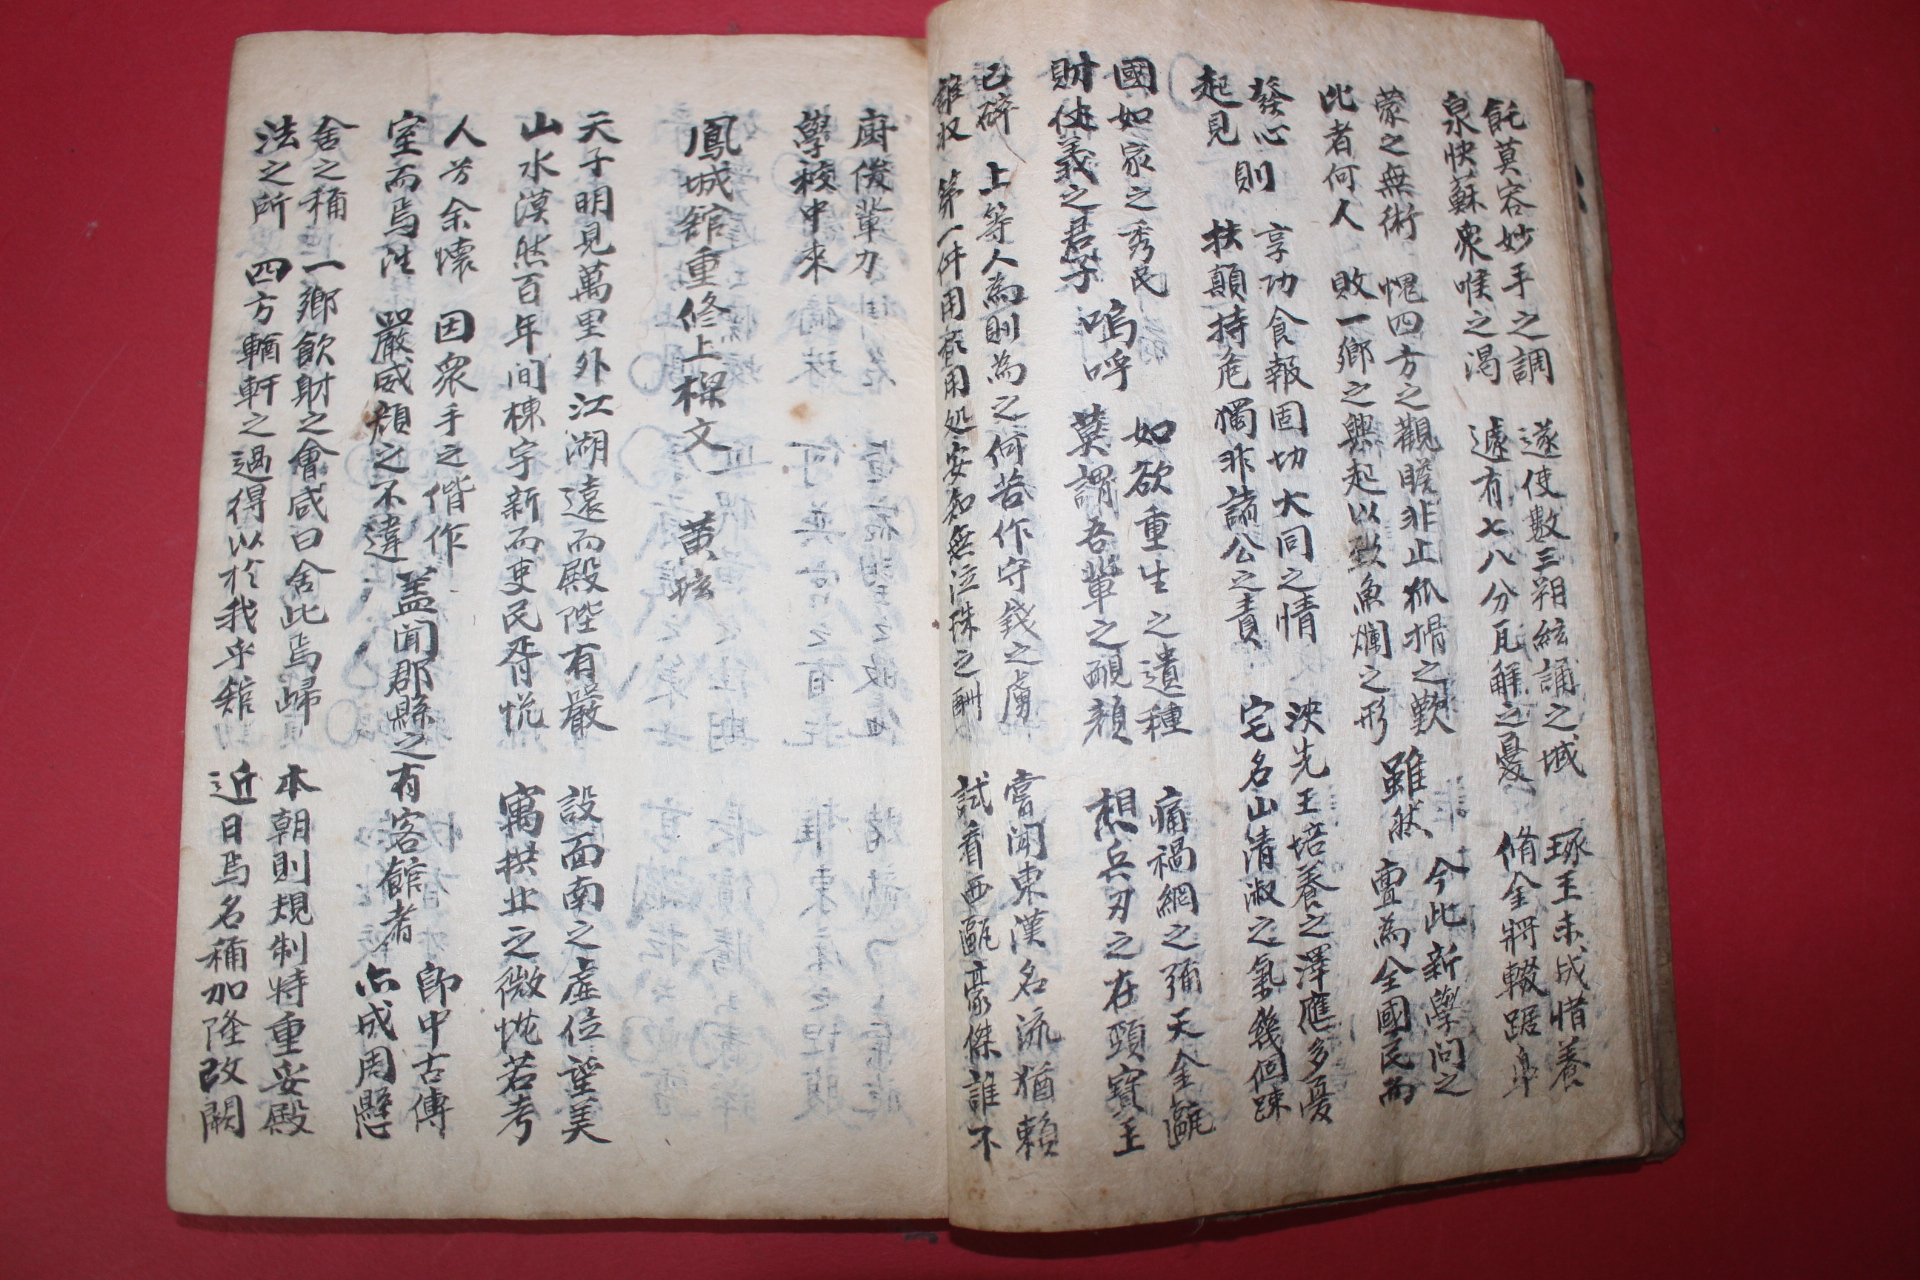 飥莫容妙手之調 遂使數三朔絃誦之城 琢玉未成惜養
泉快蘇衆喉之渴 遽有七八分瓦解之憂 脩金將輟踞皐
蒙之無術 愧四方之觀瞻非止狐搰之歎 今此新學問之
此者何人 敗一鄉之興起以致魚爛之形 雖然 亶為全國民而
發心 則 享功食報固切大同之情 泱先王培養之澤應多憂
起見 扶顚持危獨非諸公之責 宅名山淸淑之氣幾個疎
國如家之秀民 如欲重生之遺種 痛禍網之彌天金甌
財仗義之君子 嗚呼 莫謂吾輩之靦顔 想兵刃之在頸寶玉
已碎 上等人為則為之何苦作守錢之虜 嘗聞東漢名流猶賴
雖収 第一件用最用処安知無泣珠之酬 試看西甌豪傑誰不
廚俊輩力
學校中來
鳳城舘重修上樑文 黃玹
天子明見萬里外江湖遠而殿陛有嚴 設面南之虛位望美
山水漠然百年间棟宇新而吏民胥悦 寓拱北之微忱若考
人兮余懷 因衆手之偕作 盖聞郡縣之有客館者 卽中古傳
室而焉法 嚴威顔之不違 亦成周縣
舍之稱 一鄉飮財之會咸曰舍此焉歸 本朝則規制特重妥殿
法之所 四方輶軒之過得以於我乎舘 近日焉名稱加隆改闕